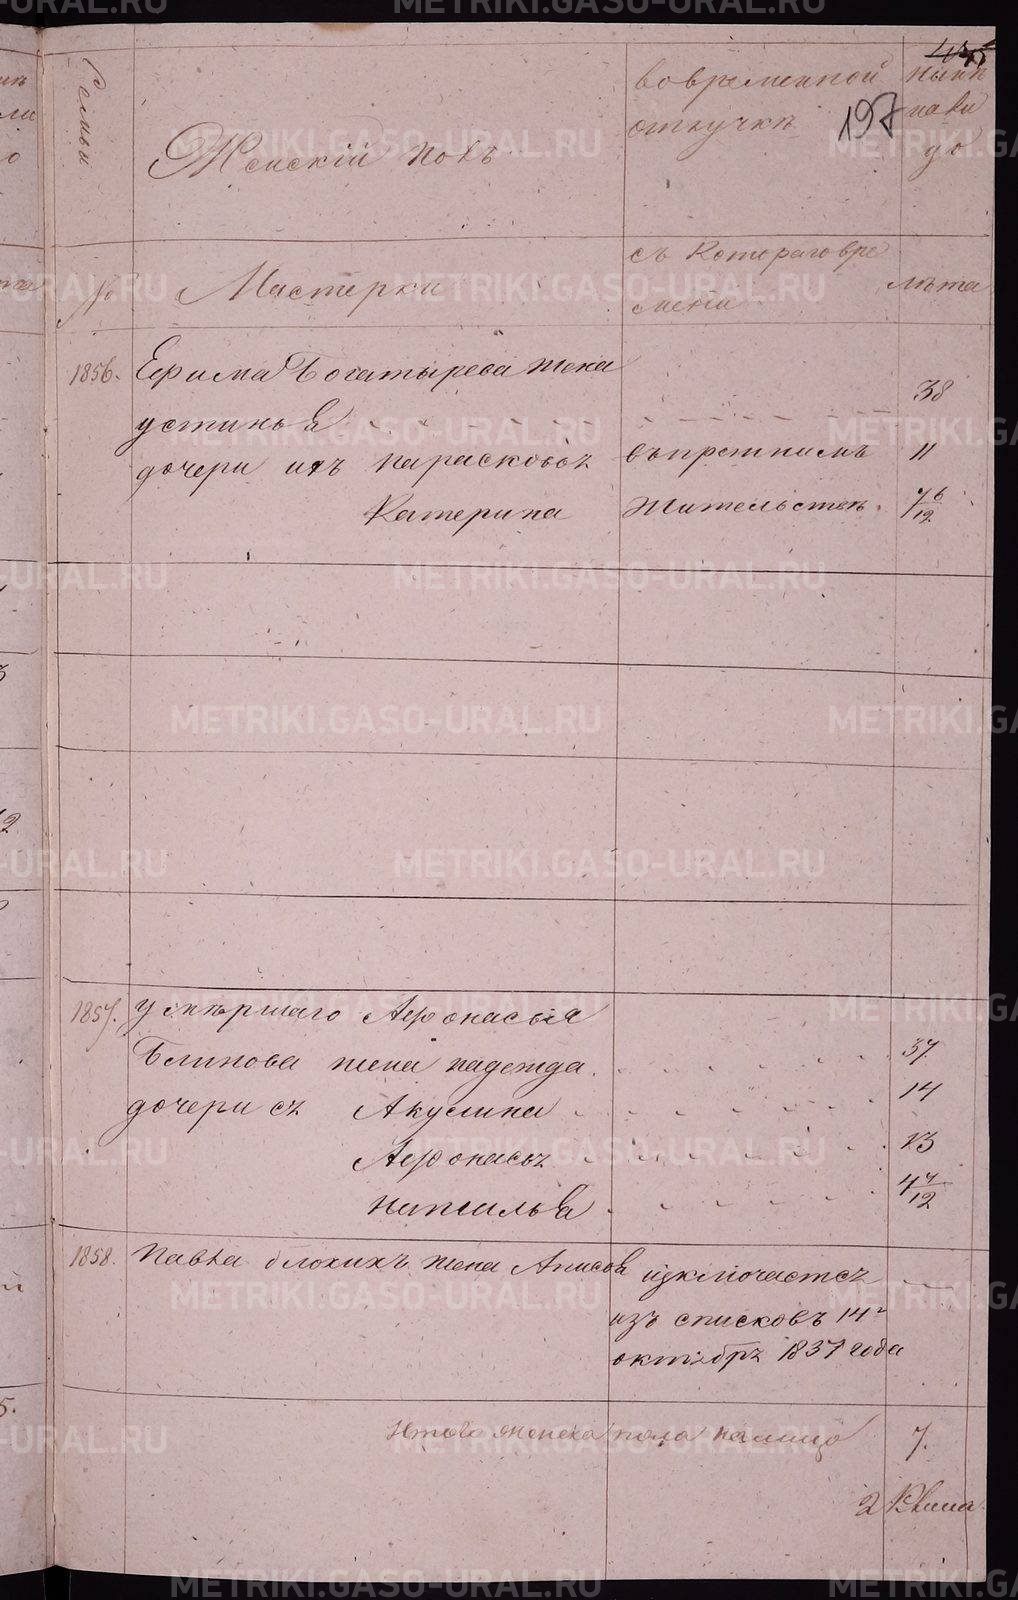 Семьи
Женскій полъ
вовременной
отлучкѣ
197
нынѣ
налицо
№
Мастерки
съ Котораговре
мени
лѣта
1856.
Ефима Богатырева жена
устинья
38
дочери ихъ парасковья
впрежнемъ
11
Катерина
жительствѣ.
7 6/12
1857.
умѣршаго Афонасья
Блинова жена надежда
37
дочери съ Акулина
14
Афонасья
13
наталья
4 4/12
1858.
павла блохихъ жена Аписья
изключается
изъ списковъ 14го
октябрѣ 1837 года
Итого женска пола налицо
7.
METRIKI.GASO-URAL.RU